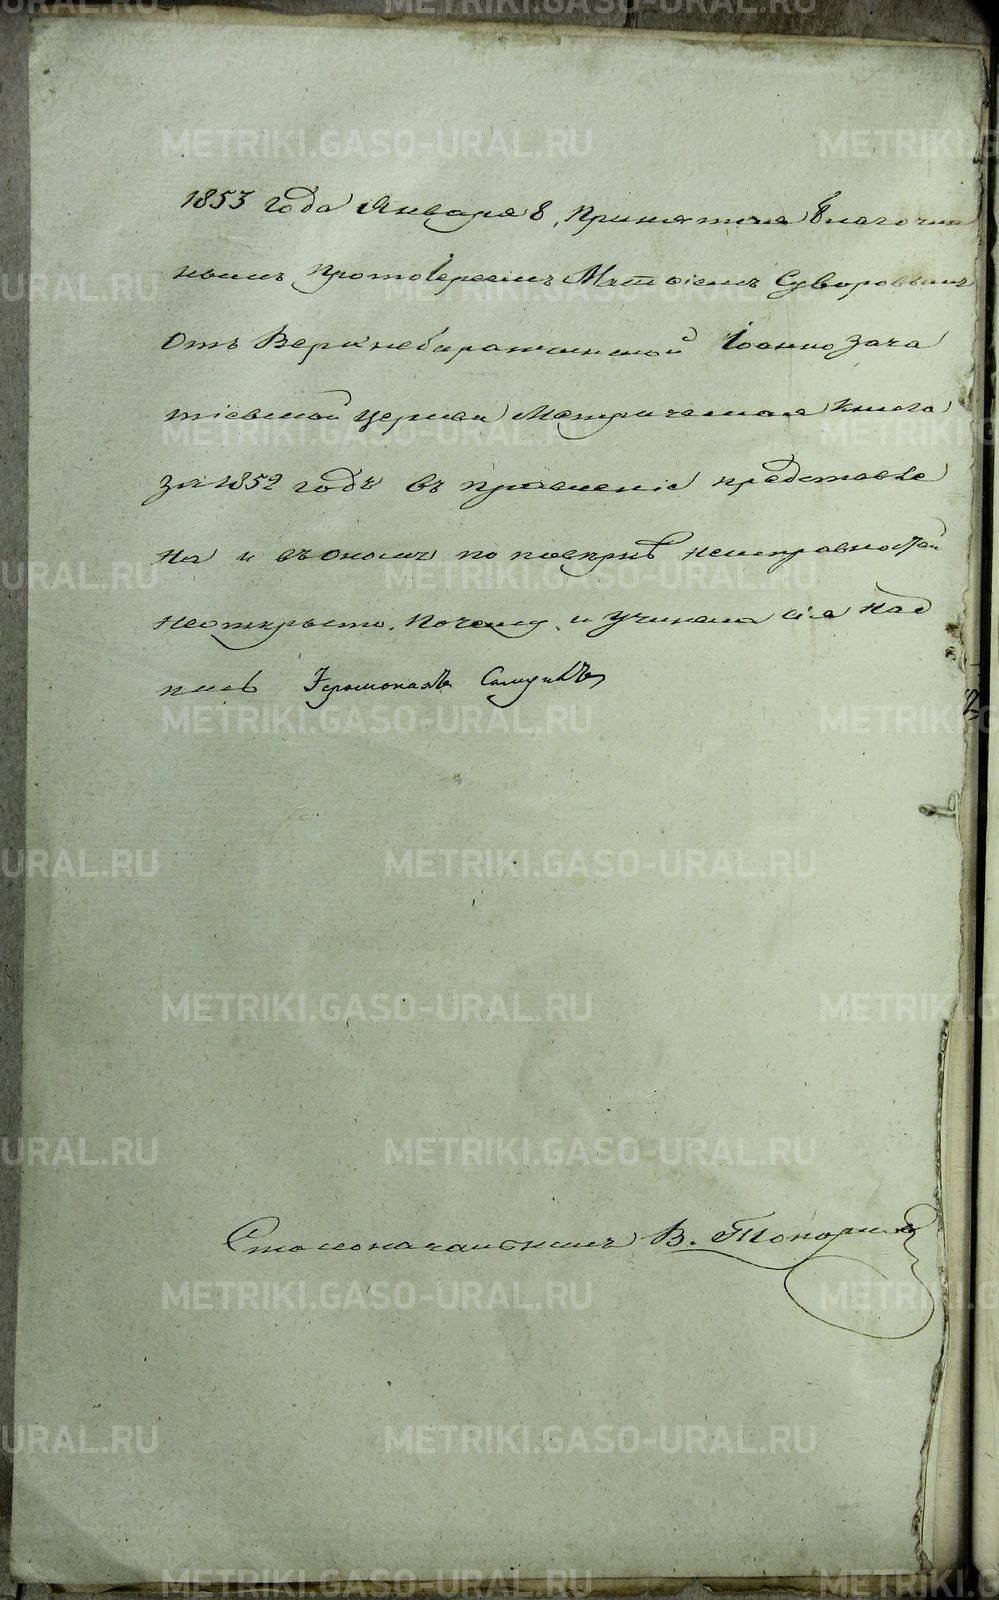 1853 года Января 8, Принятая Благочин
нымъ Протоіереемъ Матѳіемъ Суворовымъ
Отъ Верхнебаранчинской Іоанно Зача
тіевской Церкви Метрическая Книга
за 1852 годъ въ правленіе представле
на и въ оной по повѣркѣ неисправностей
неоткрыто. Почему и учинена сія над
пись Іеромонахъ Самуилъ
Столоначальникъ В. Топорк
METRIKI.GASO-URAL.RU